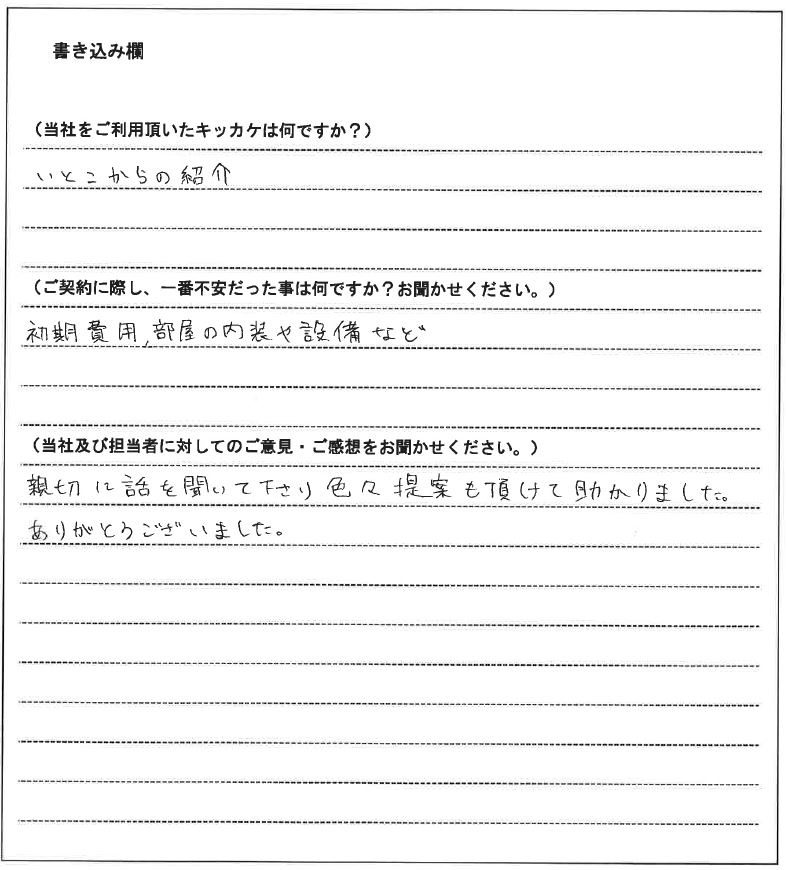 書き込み欄
（当社をご利用頂いたキッカケは何ですか？）
いとこからの紹介
（ご契約に際し、一番不安だった事は何ですか？お聞かせください。）
初期費用,部屋の内装や設備など
（当社及び担当者に対してのご意見・ご感想をお聞かせください。）
親切に話を聞いて下さり色々提案も頂けて助かりました。
ありがとうございました。